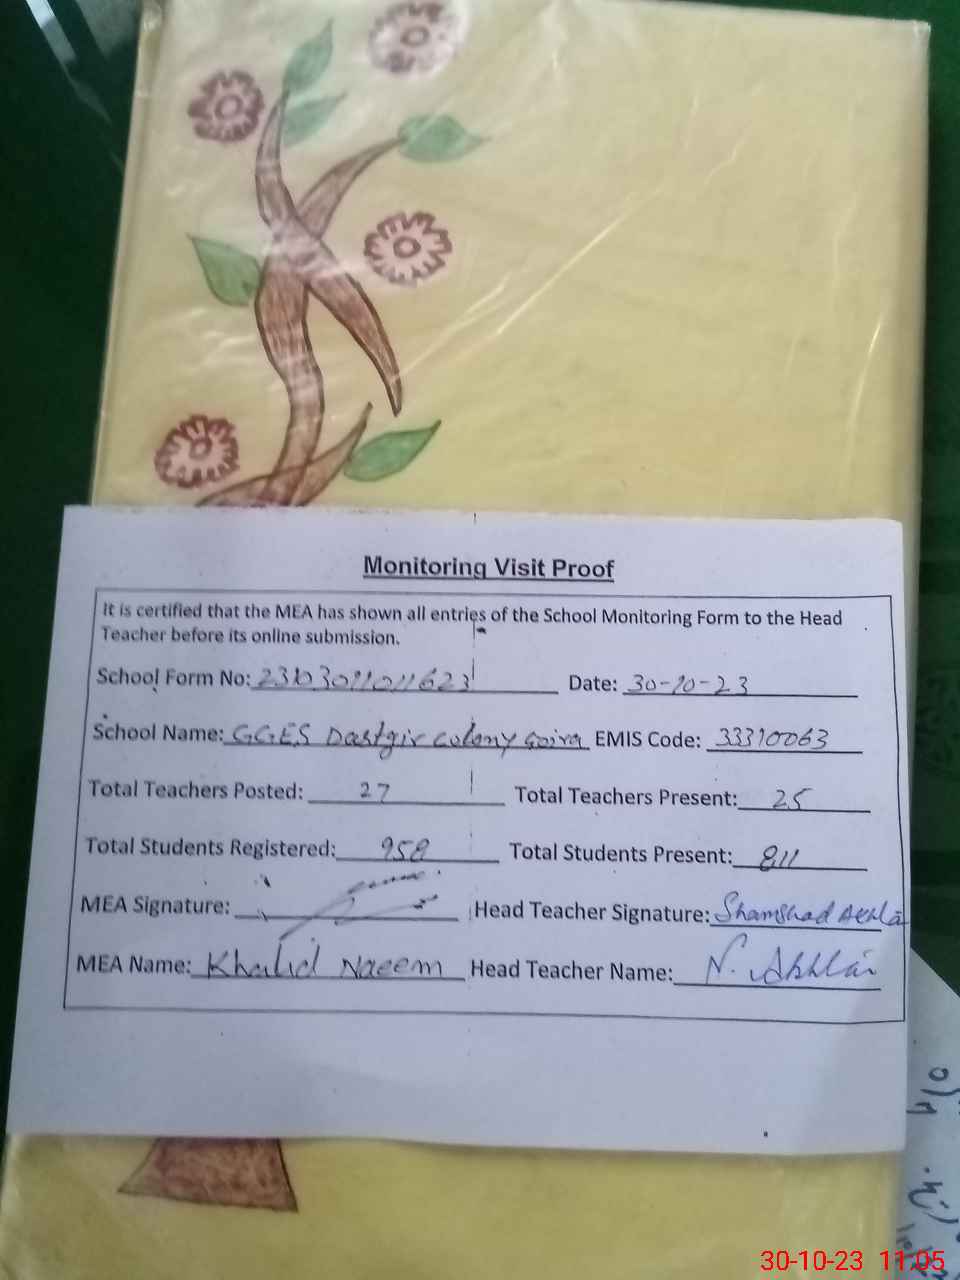 Monitoring Visit Proof
It is certified that the MEA has shown all entries of the School Monitoring Form to the Head
Teacher before its online submission.
School Form No: 2310301101623 Date: 30-10-23
School Name: GGES Dastgir colony Gojra EMIS Code: 33310063
Total Teachers Posted: 27 Total Teachers Present: 25
Total Students Registered: 958 Total Students Present: 811
MEA Signature: Head Teacher Signature: Shamshad Akhla
MEA Name: Khalid Naeem Head Teacher Name: Akhla
30-10-23 11:05